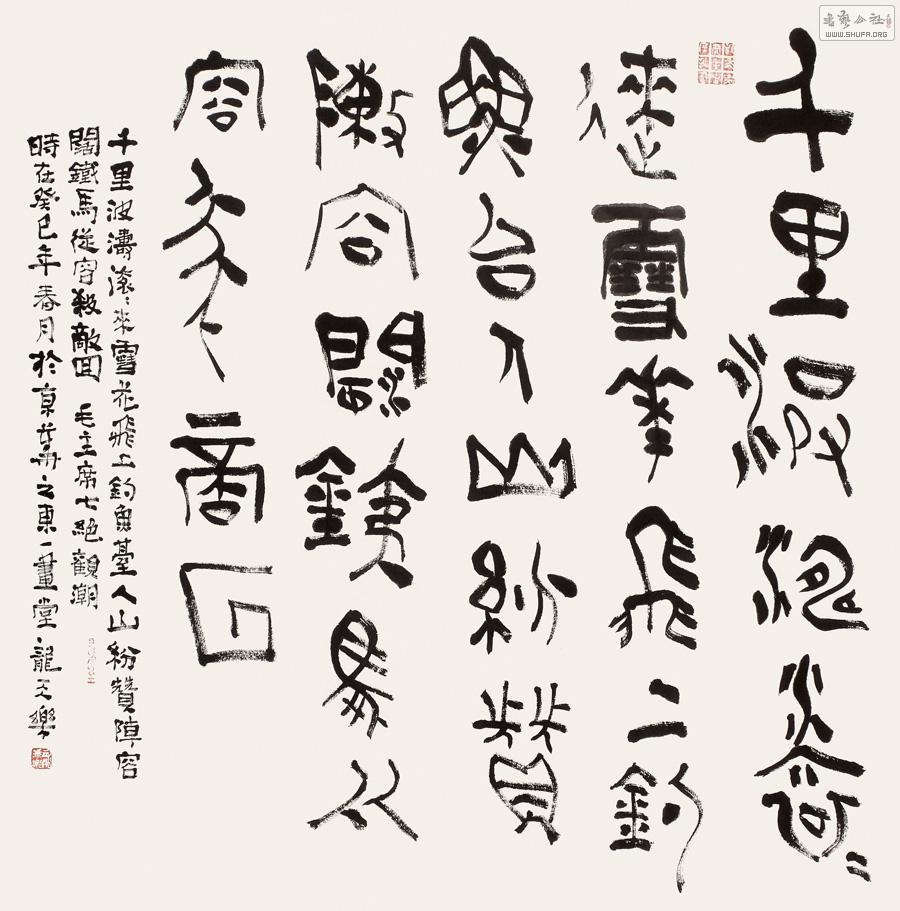 千里波濤滾〻
來雪花飛上釣
魚台人山紛贊
陣容闊鐵馬從
容殺敵回
千里波濤滾〻來雪花飛上釣魚臺人山紛贊陣容
闊鐵馬從容殺敵回 毛主席七絕觀潮
時在癸巳年春月於京華之東一畫堂龍樂
書藝公社
WWW.SHUFA.ORG